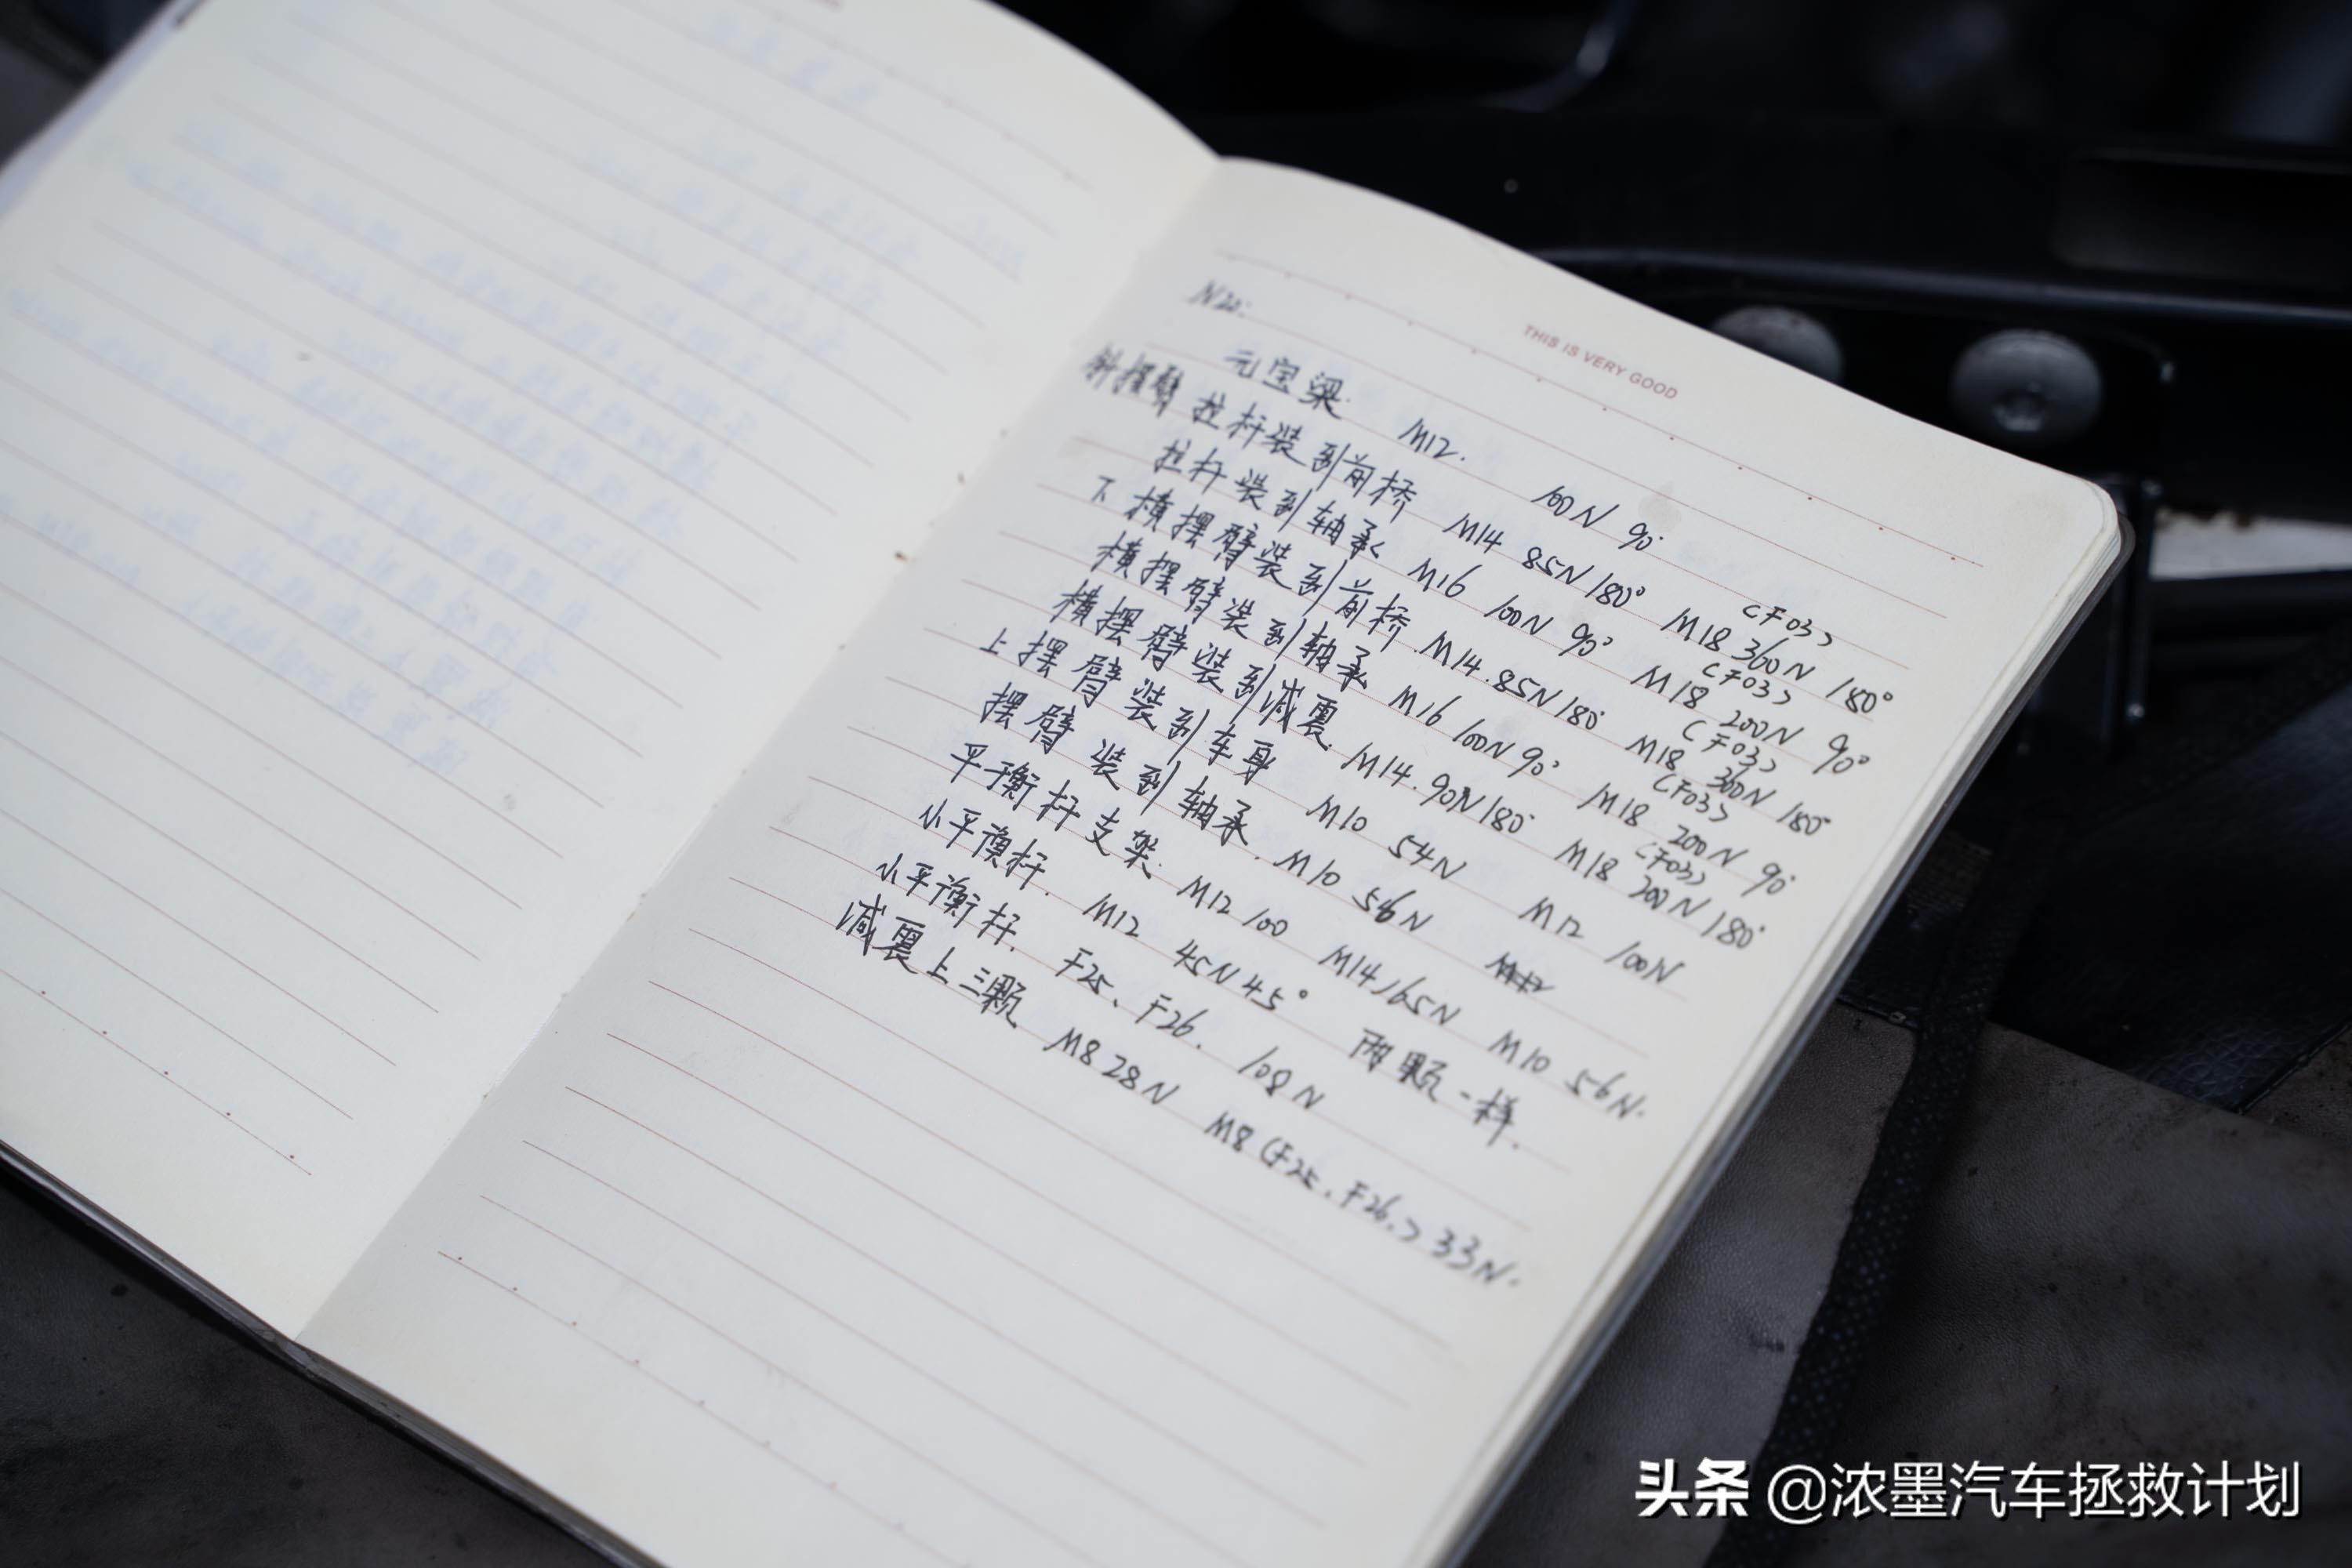 THIS IS VERY GOOD
N20:
元宝梁. M12. 100N 90°
斜摆臂 拉杆装到前桥 M14 85N 180° M18 360N 180° (F03)
拉杆装到轴承 M16 100N 90° M18 200N 90° (F03)
下横摆臂装到前桥. M14. 85N 180° M18 300N 180° (F03)
横摆臂装到轴承 M16 100N 90° M18 200N 90° (F03)
横摆臂装到减震. M14. 90N 180° M18 200N 180° (F03)
上摆臂装到车身 M10 54N M12 100N
摆臂装到轴承. M10 56N
平衡杆支架. M12 100 M14 165N M10 56N.
小平衡杆. M12 45N 45° 两颗一样.
小平衡杆. F25、F26. 108N
减震上三颗 M8 28N M8 (F25、F26.) 33N.
头条 @浓墨汽车拯救计划